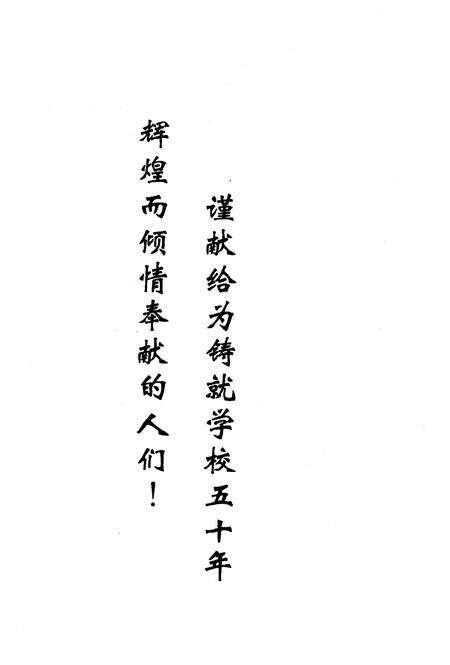 谨献给为铸就学校五十年
辉煌而倾情奉献的人们！